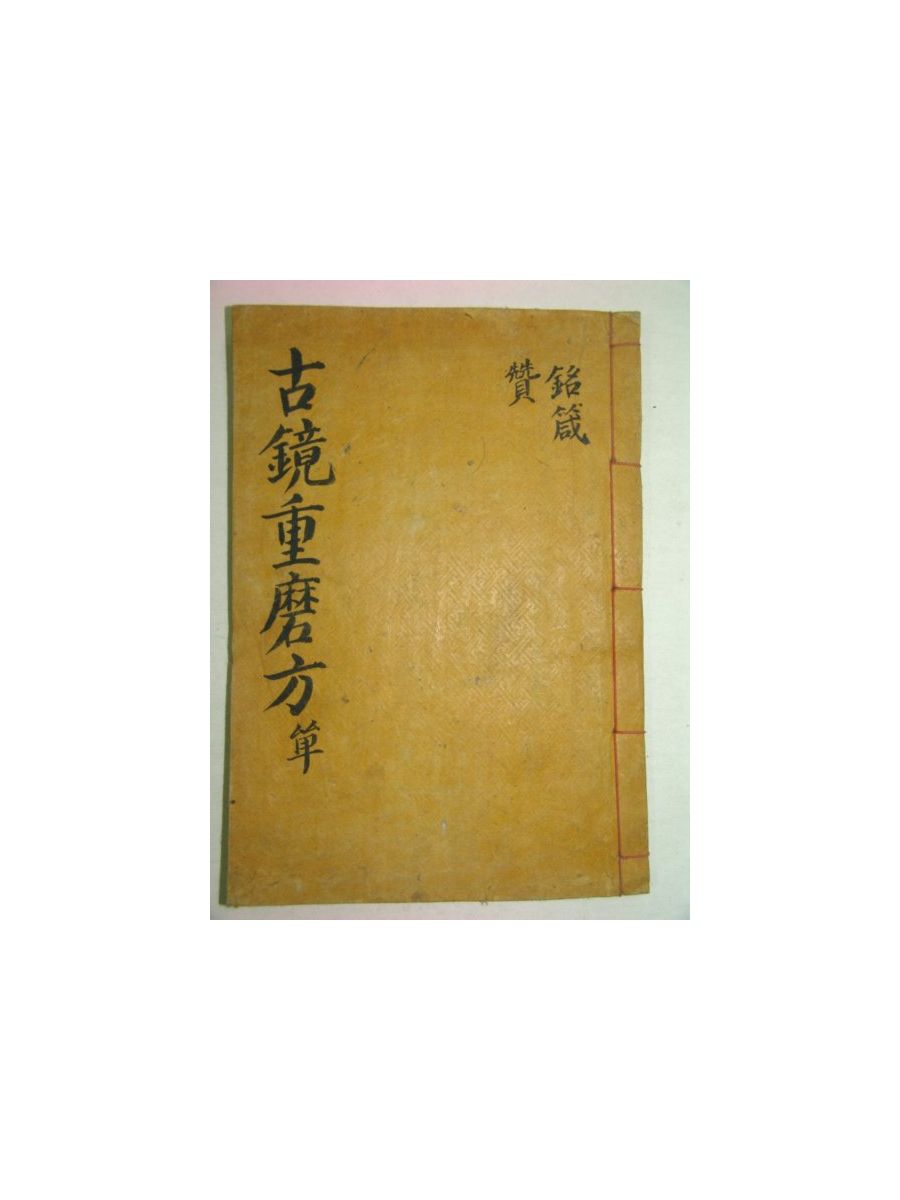 銘箴
贊
古鏡重磨方 單